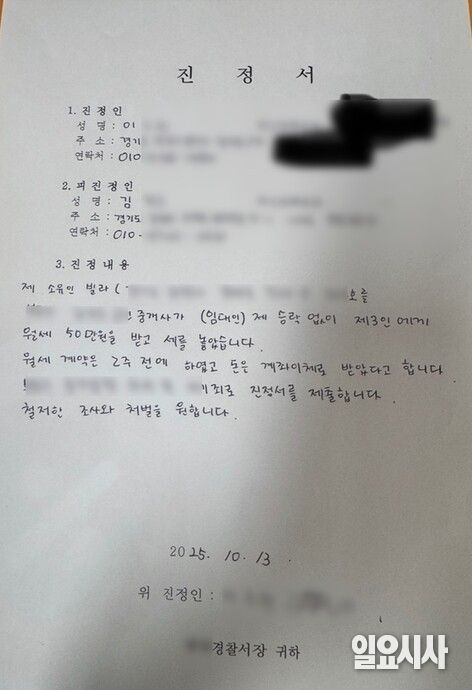 진 정 서
1. 진 정 인
성 명 : 이
주 소 : 경기
연락처 : 010
2. 피 진 정 인
성 명 : 김
주 소 : 경기도
연락처 : 010-
3. 진 정 내 용
제 소유인 빌라 ( 호를
중개사가 (임대인) 제 승락 없이 제3인 에게
월세 50만원을 받고 세를 놓았습니다.
월세 계약은 2주 전에 하였고 돈은 계좌이체로 받았다고 합니다
죄로 진정서를 제출합니다.
철저한 조사와 처벌을 원합니다.
2025. 10. 13.
위 진정인 :
경찰서장 귀하
일요시사